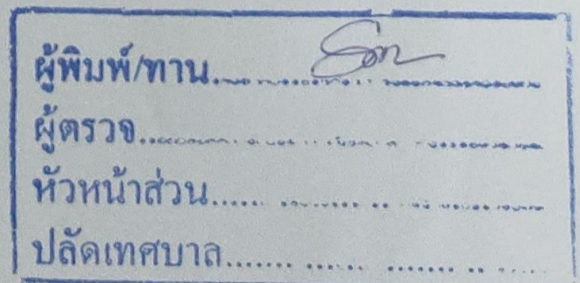 ผู้พิมพ์/ทาน
ผู้ตรวจ
หัวหน้าส่วน
ปลัดเทศบาล